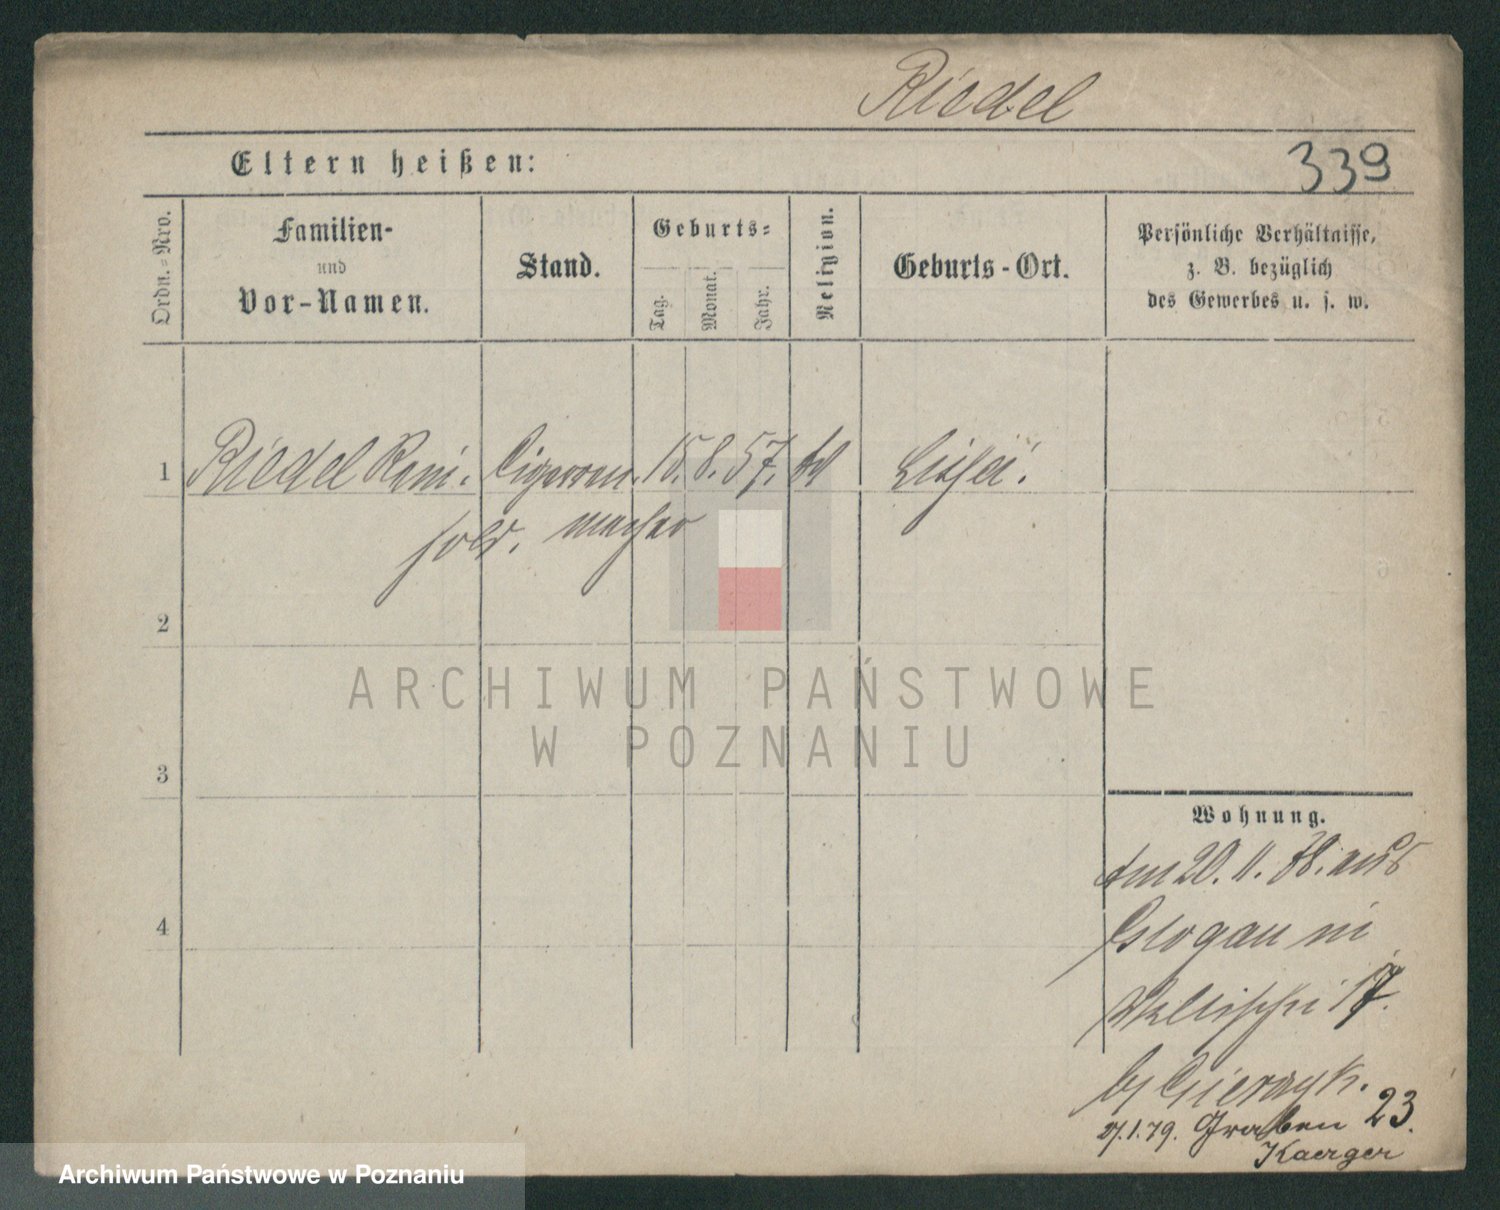 Riedel
Eltern heißen:
339
Ordn.-Nro.
Familien-
und
Vor-Namen.
Stand.
Geburts-
Tag.
Monat.
Jahr.
Religion.
Geburts-Ort.
Persönliche Verhältnisse,
z. B. bezüglich
des Gewerbes u. s. w.
1 Riedel Rein- Cigarren- 15. 8. 57.
hold. macher
2
3
4
Wohnung.
Am 20. 11. 78. aus
Glogau in
Wallischei 17.
27.1.79. Graben 23.
Kaerger
ARCHIWUM PAŃSTWOWE
W POZNANIU
Archiwum Państwowe w Poznaniu